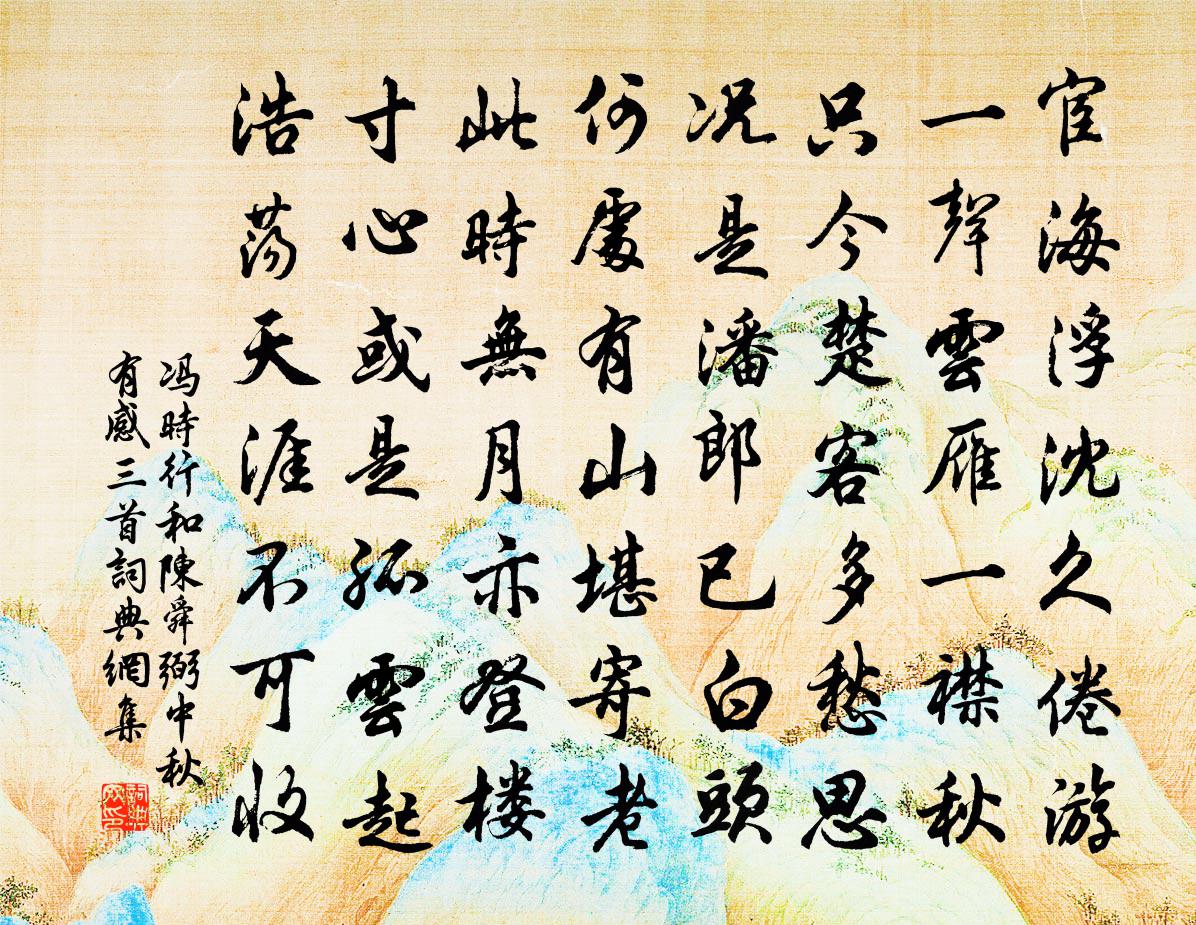 宦海浮沈久倦游
一聲雲雁一襟秋
只今楚客多愁思
况是潘郎已白頭
何處有山堪寄老
此時無月亦登樓
寸心或是孤雲起
浩蕩天涯不可收
馮時行和陳舜弼中秋
有感三首詞典網集